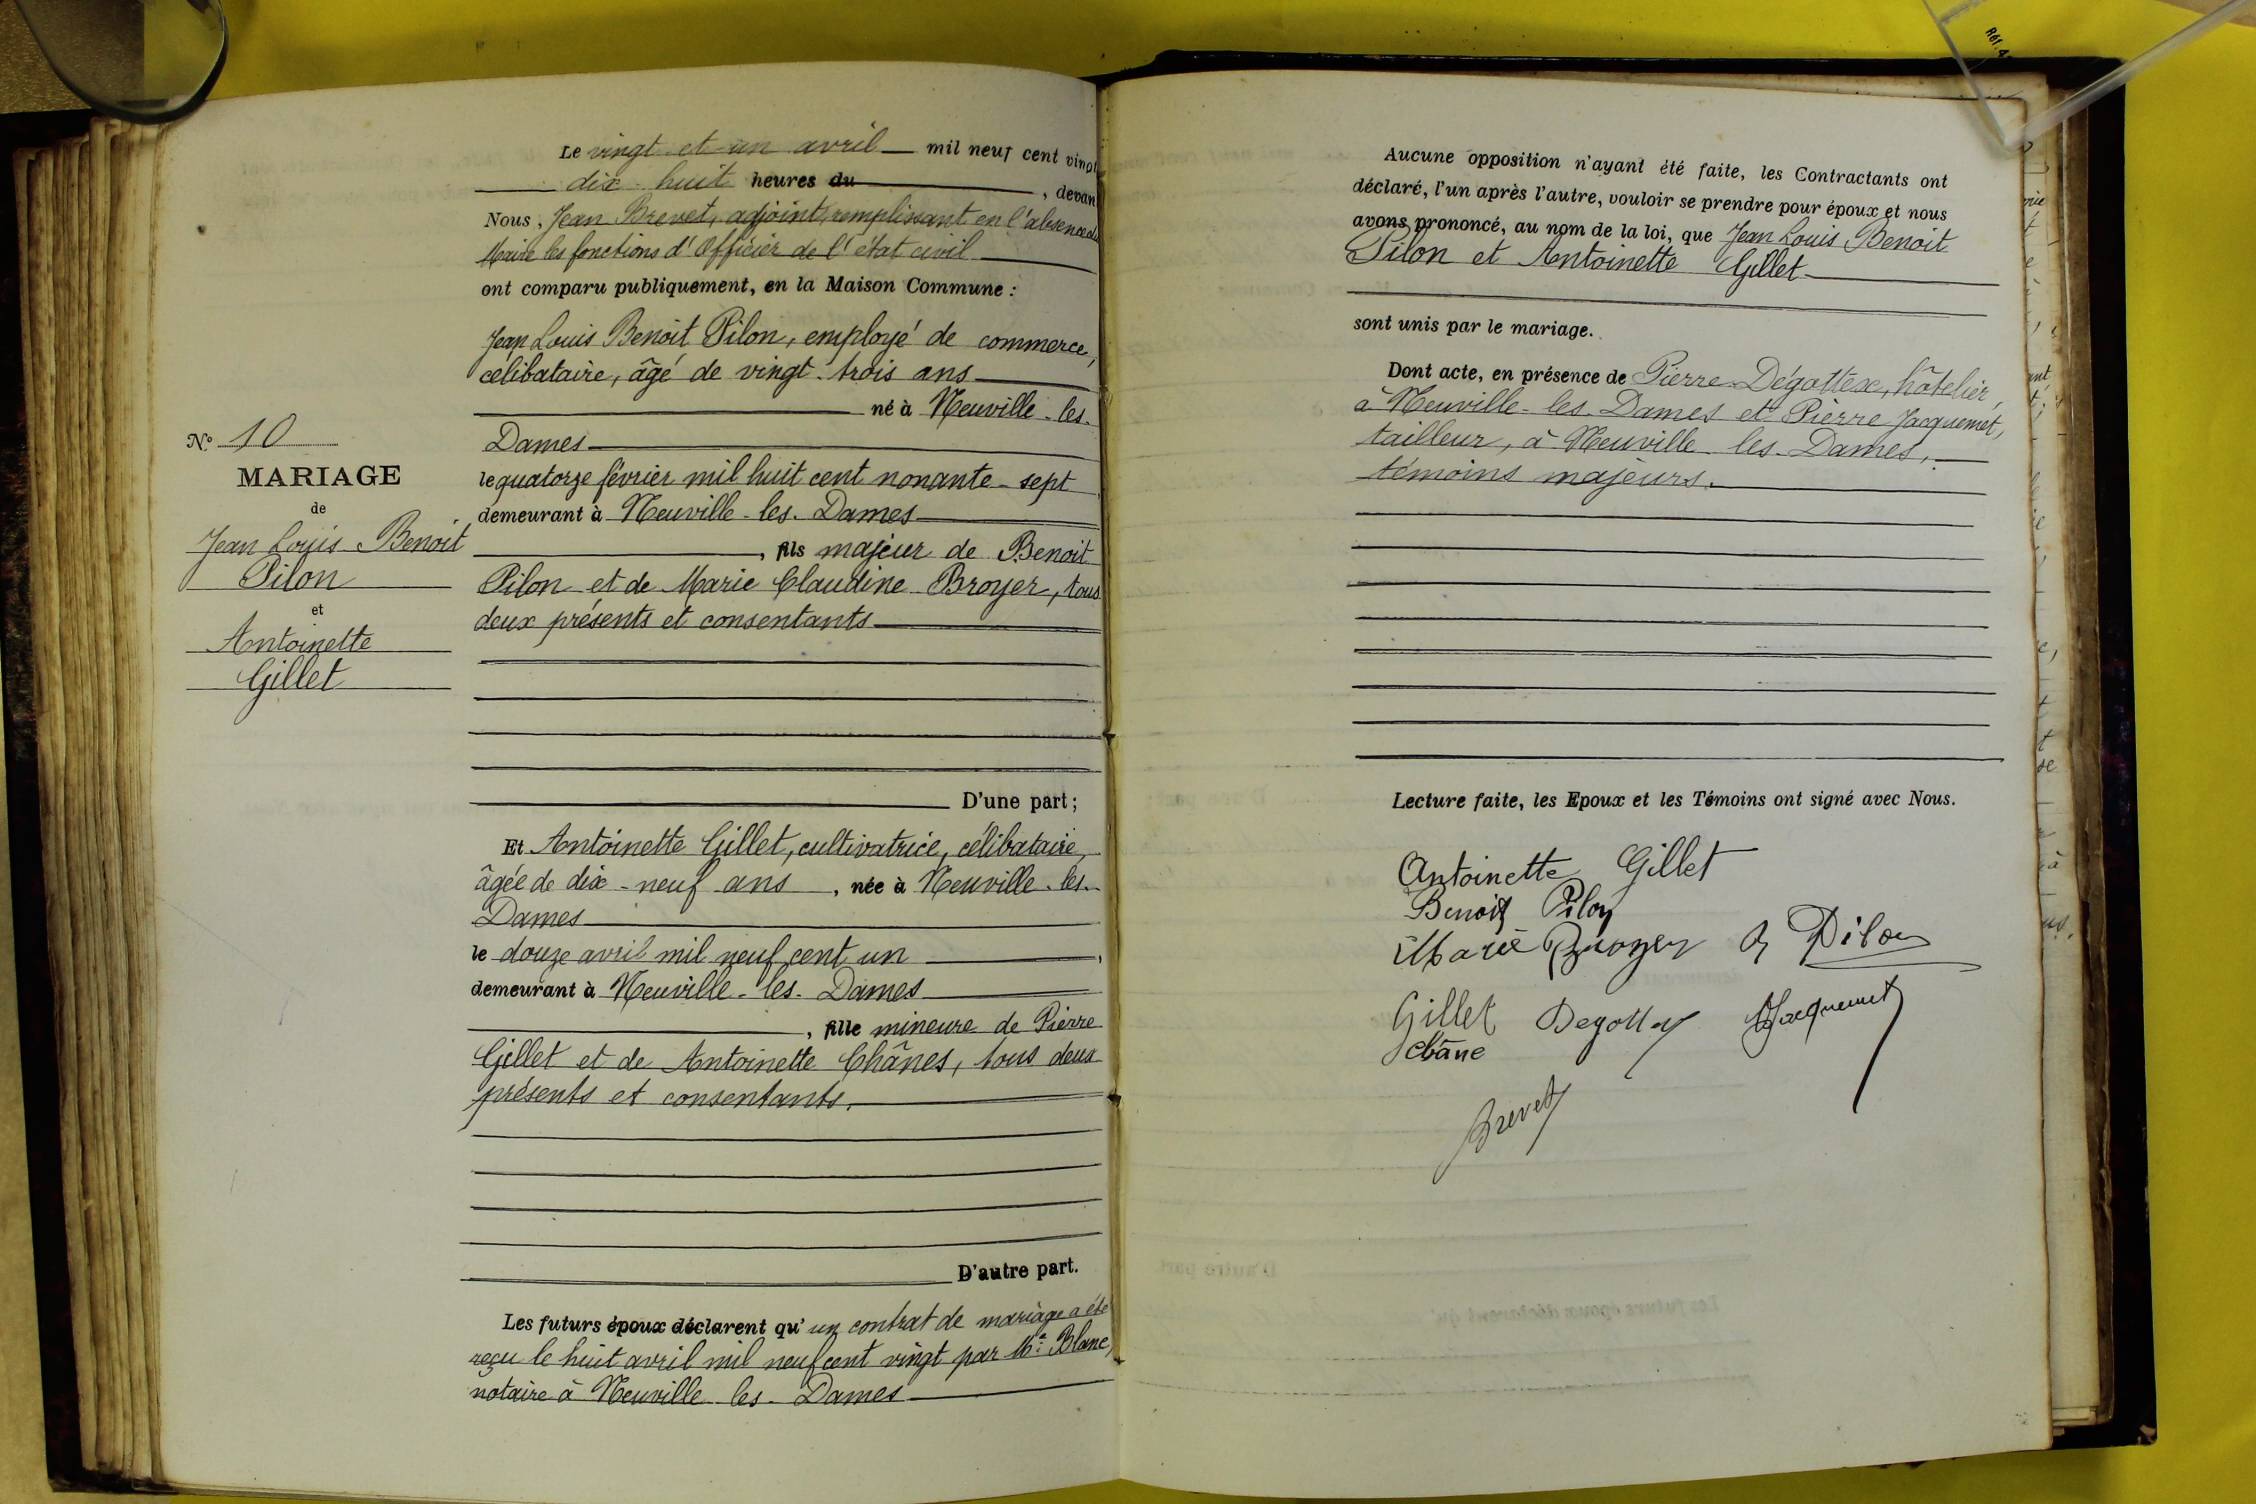 Réf. 4
Le vingt et un avril mil neuf cent vingt
dix huit heures du , devan
Nous, Jean Brevet, adjoint, remplissant en l'absence du
Maire les fonctions d'Officier de l'état civil
ont comparu publiquement, en la Maison Commune :
Jean Louis Benoit Pilon, employé de commerce,
célibataire, âgé de vingt-trois ans
né à Neuville-les-
Dames
le quatorze février mil huit cent nonante-sept
demeurant à Neuville-les-Dames
, fils majeur de Benoit
Pilon et de Marie Claudine Broyer, tous
deux présents et consentants
D'une part ;
Et Antoinette Gillet, cultivatrice, célibataire,
âgée de dix-neuf ans , née à Neuville-les-
Dames
le douze avril mil neuf cent un ,
demeurant à Neuville-les-Dames
, fille mineure de Pierre
Gillet et de Antoinette Chânes, tous deux
présents et consentants.
D'autre part.
Les futurs époux déclarent qu'un contrat de mariage a été
reçu le huit avril mil neuf cent vingt par Me Blanc,
notaire à Neuville-les-Dames
No 10
MARIAGE
de
Jean Louis Benoit
Pilon
et
Antoinette
Gillet
Aucune opposition n'ayant été faite, les Contractants ont
déclaré, l'un après l'autre, vouloir se prendre pour époux et nous
avons prononcé, au nom de la loi, que Jean Louis Benoit
Pilon et Antoinette Gillet
sont unis par le mariage.
Dont acte, en présence de Pierre Dégottex, hôtelier,
à Neuville-les-Dames et Pierre Jacquemet,
tailleur, à Neuville-les-Dames,
témoins majeurs.
Lecture faite, les Epoux et les Témoins ont signé avec Nous.
Antoinette Gillet
Benoit Pilon
Marie Broyer B Pilon
Gillet Degottex Jacquemet
Châne
Brevet